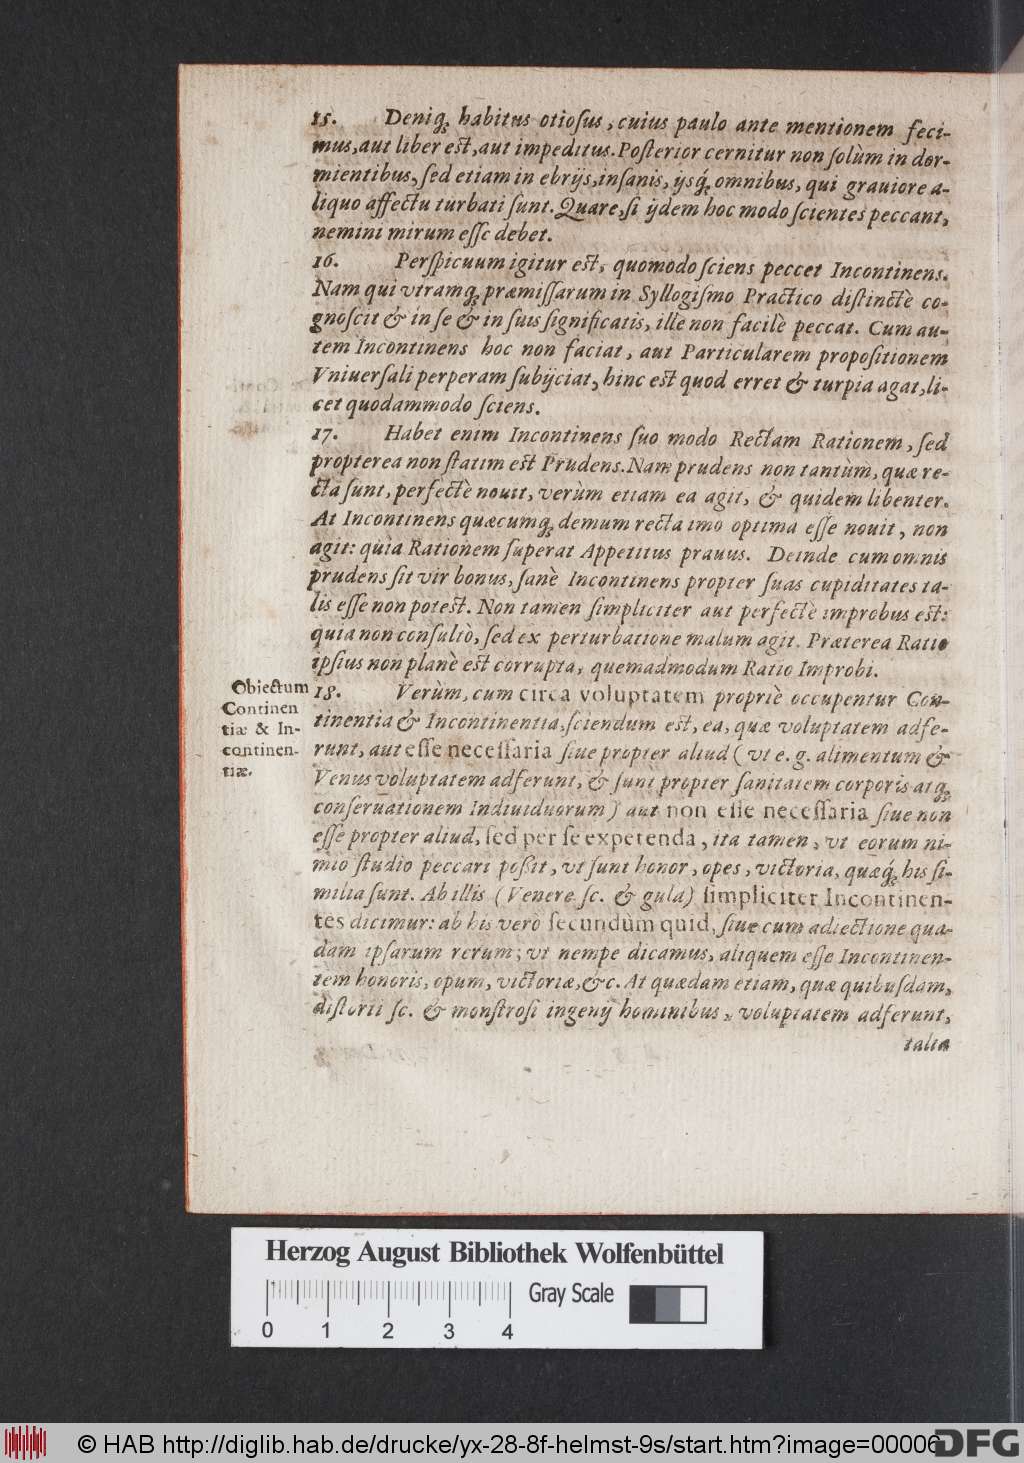 15. Deniq́ꝫ habitus otioſus, cuius paulo ante mentionem feci-
mus, aut liber eſt, aut impeditus. Poſterior cernitur non ſolùm in dor-
mientibus, ſed etiam in ebrijs, inſanis, ijsq́ꝫ omnibus, qui grauiore a-
liquo affectu turbati ſunt. Quare, ſi ijdem hoc modo ſcientes peccant,
nemini mirum eſſe debet.
16. Perſpicuum igitur eſt, quomodo ſciens peccet Incontinens.
Nam qui vtramqꝫ præmiſſarum in Syllogiſmo Practico diſtinctè co-
gnoſcit & in ſe & in ſuis ſignificatis, ille non facilè peccat. Cum au-
tem Incontinens hoc non faciat, aut Particularem propoſitionem
Vniuerſali perperam ſubijciat, hinc eſt quod erret & turpia agat, li-
cet quodammodo ſciens.
17. Habet enim Incontinens ſuo modo Rectam Rationem, ſed
propterea non ſtatim eſt Prudens. Nam prudens non tantùm, quæ re-
cta ſunt, perfectè nouit, verùm etiam ea agit, & quidem libenter.
At Incontinens quæcumqꝫ demum recta imo optima eſſe nouit, non
agit: quia Rationem ſuperat Appetitus prauus. Deinde cum omnis
prudens ſit vir bonus, ſanè Incontinens propter ſuas cupiditates ta-
lis eſſe non poteſt. Non tamen ſimpliciter aut perfectè improbus eſt:
quia non conſultò, ſed ex perturbatione malum agit. Præterea Ratio
ipſius non planè eſt corrupta, quemadmodum Ratio Improbi.
Obiectum
Continen
tiæ & In-
continen-
tiæ.
18. Verùm, cum circa voluptatem propriè occupentur Con-
tinentia & Incontinentia, ſciendum eſt, ea, quæ voluptatem adfe-
runt, aut eſſe neceſſaria ſiue propter aliud (vt e. g. alimentum &
Venus voluptatem adferunt, & ſunt propter ſanitatem corporis atqꝫ
conſeruationem Indiuiduorum) aut non eſſe neceſſaria ſiue non
eſſe propter aliud, ſed per ſe expetenda, ita tamen, vt eorum ni-
mio ſtudio peccari poßit, vt ſunt honor, opes, victoria, quæq́ꝫ his ſi-
milia ſunt. Ab illis (Venere ſc. & gula) ſimpliciter Incontinen-
tes dicimur: ab his verò ſecundùm quid, ſiue cum adiectione qua-
dam ipſarum rerum; vt nempe dicamus, aliquem eſſe Incontinen-
tem honoris, opum, victoriæ, &c. At quædam etiam, quæ quibuſdam,
diſtorti ſc. & monſtroſi ingenij hominibus, voluptatem adferunt,
talia
Herzog August Bibliothek Wolfenbüttel
Gray Scale
0 1 2 3 4
© HAB http://diglib.hab.de/drucke/yx-28-8f-helmst-9s/start.htm?image=00006
DFG